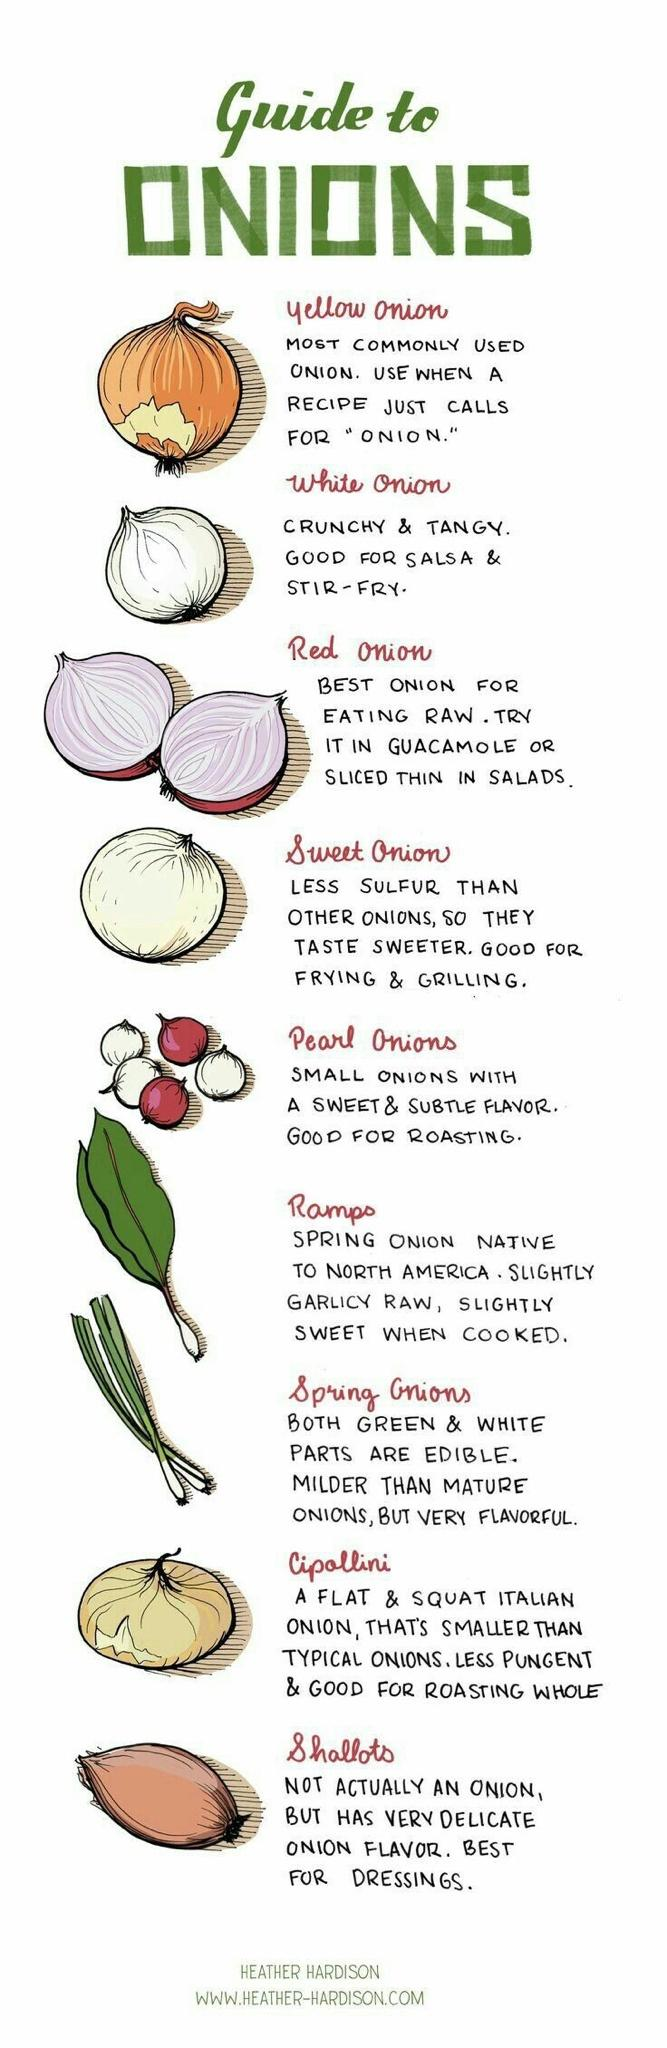 Guide to
ONIONS
Yellow Onion
MOST COMMONLY USED
ONION. USE WHEN A
RECIPE JUST CALLS
FOR "ONION."
White Onion
CRUNCHY & TANGY.
GOOD FOR SALSA &
STIR-FRY.
Red Onion
BEST ONION FOR
EATING RAW. TRY
IT IN GUACAMOLE OR
SLICED THIN IN SALADS.
Sweet Onion
LESS SULFUR THAN
OTHER ONIONS, SO THEY
TASTE SWEETER. GOOD FOR
FRYING & GRILLING.
Pearl Onions
SMALL ONIONS WITH
A SWEET & SUBTLE FLAVOR.
GOOD FOR ROASTING.
Ramps
SPRING ONION NATIVE
TO NORTH AMERICA. SLIGHTLY
GARLICY RAW, SLIGHTLY
SWEET WHEN COOKED.
Spring Onions
BOTH GREEN & WHITE
PARTS ARE EDIBLE.
MILDER THAN MATURE
ONIONS, BUT VERY FLAVORFUL.
Cipollini
A FLAT & SQUAT ITALIAN
ONION, THAT'S SMALLER THAN
TYPICAL ONIONS. LESS PUNGENT
& GOOD FOR ROASTING WHOLE
Shallots
NOT ACTUALLY AN ONION,
BUT HAS VERY DELICATE
ONION FLAVOR. BEST
FOR DRESSINGS.
HEATHER HARDISON
WWW.HEATHER-HARDISON.COM